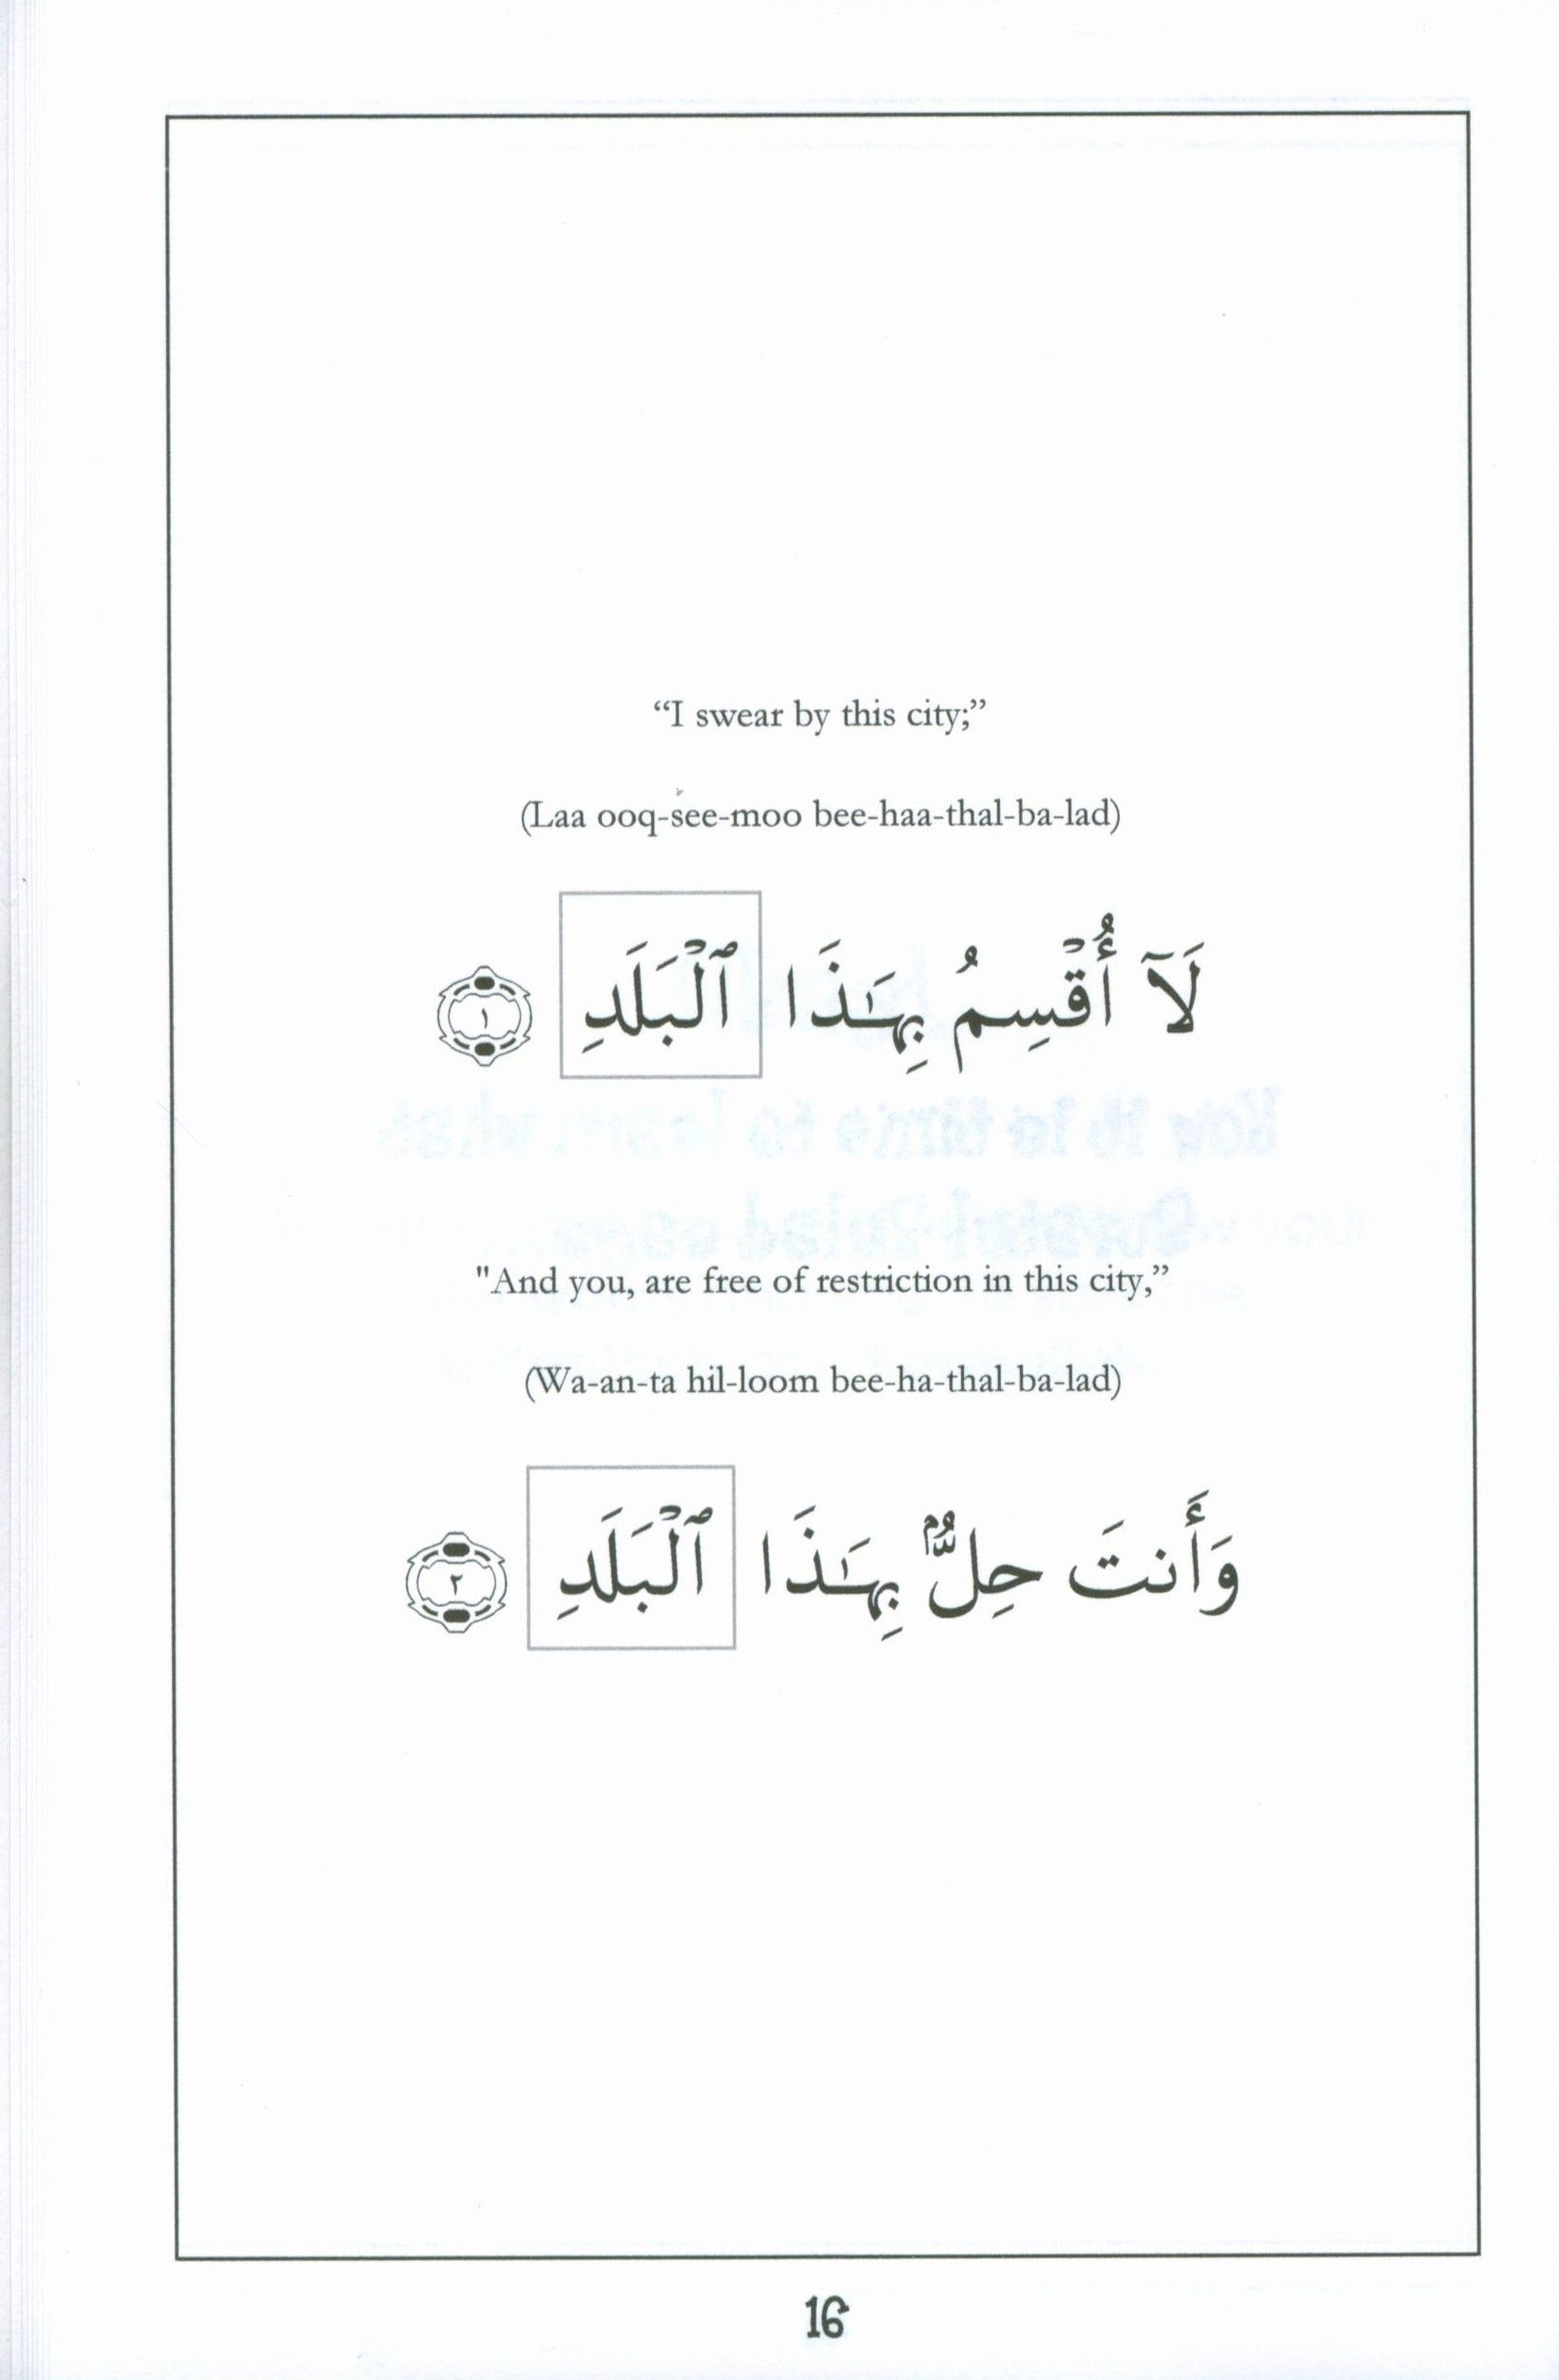 “I swear by this city;”
(Laa ooq-see-moo bee-haa-thal-ba-lad)
لَآ أُقْسِمُ بِهَـٰذَا ٱلْبَلَدِ ١
"And you, are free of restriction in this city,”
(Wa-an-ta hil-loom bee-ha-thal-ba-lad)
وَأَنتَ حِلٌّۢ بِهَـٰذَا ٱلْبَلَدِ ٢
16